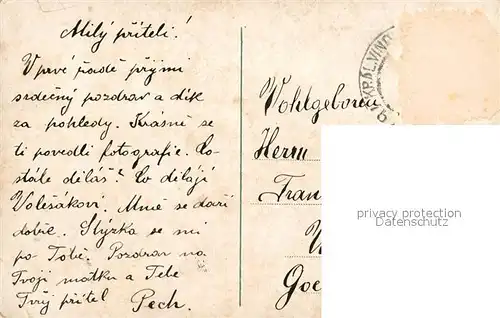 Milý příteli!
V prvé řadě přijmi
srdečný pozdrav a dík
za pohledy. Krásně se
ti povedli fotografie. Co
stále děláš? Co dělají
Volešákovi. Mně se daří
dobře. Stýzka se mi
po Tobě. Pozdrav na
Tvoji matku a Tebe
Tvůj přítel Pech.
Wohlgeboren
Herrn
Fran
Goe
privacy protection
Datenschutz